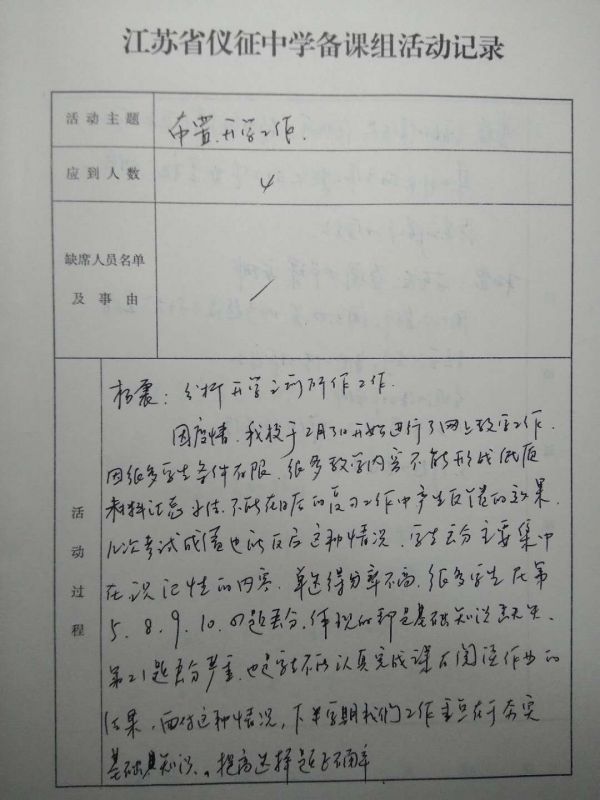 江苏省仪征中学备课组活动记录
活动主题
布置开学工作.
应到人数
4
缺席人员名单
及事由
/
活动过程
杨震：分析开学之前所作工作.
因疫情，我校于2月3日开始进行了网上教学工作.
因很多学生条件有限，很多教学内容不能形成纸质
材料让学生，不能在日后的复习工作中产生良的效果
几次考试成绩也能反应这种情况，学生丢分主要集中
在识记性的内容，单选得分率不高，很多学生在第
5.8.9.10.的题丢分，体现的都是基础知识丢失.
第21题丢分严重，也是学生不能认真完成课后阅读作业的
结果，面对这种情况，下半学期我们工作重点在于夯实
基础知识。提高选择题正确率